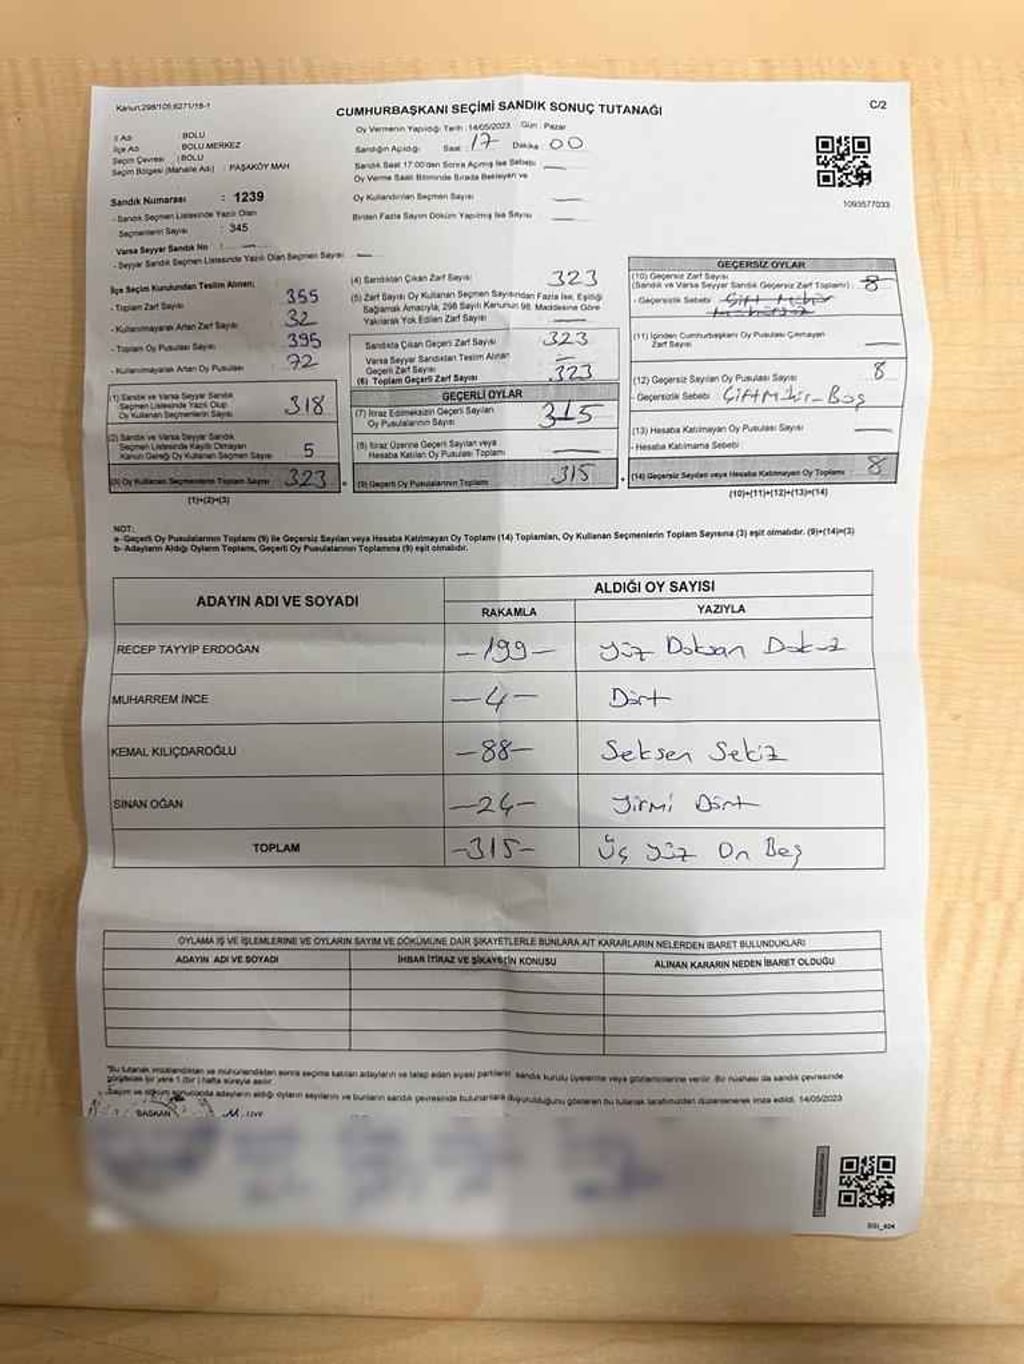 Kanun:298/105,6271/18-1
C/2
CUMHURBAŞKANI SEÇİMİ SANDIK SONUÇ TUTANAĞI
Oy Vermenin Yapıldığı Tarih :14/05/2023 Gün : Pazar
Sandığın Açıldığı Saat : 17 Dakika : 00
Sandık Saat 17:00'den Sonra Açılmış İse Sebebi —
Oy Verme Saati Bitiminde Sırada Bekleyen ve
Oy Kullandırılan Seçmen Sayısı —
Birden Fazla Sayım Döküm Yapılmış İse Sayısı —
İl Adı : BOLU
İlçe Adı : BOLU MERKEZ
Seçim Çevresi : BOLU
Seçim Bölgesi (Mahalle Adı) : PAŞAKÖY MAH
Sandık Numarası : 1239
- Sandık Seçmen Listesinde Yazılı Olan
Seçmenlerin Sayısı : 345
Varsa Seyyar Sandık No : —
- Seyyar Sandık Seçmen Listesinde Yazılı Olan Seçmen Sayısı : —
1093577033
İlçe Seçim Kurulundan Teslim Alınan;
- Toplam Zarf Sayısı 355
- Kullanılmayarak Artan Zarf Sayısı 32
- Toplam Oy Pusulası Sayısı 395
- Kullanılmayarak Artan Oy Pusulası 72
(1) Sandık ve Varsa Seyyar Sandık
Seçmen Listesinde Yazılı Olup
Oy Kullanan Seçmenlerin Sayısı 318
(2) Sandık ve Varsa Seyyar Sandık
Seçmen Listesinde Kayıtlı Olmayan
Kanun Gereği Oy Kullanan Seçmen Sayısı 5
(3) Oy Kullanan Seçmenlerin Toplam Sayısı 323
(1)+(2)=(3)
(4) Sandıktan Çıkan Zarf Sayısı 323
(5) Zarf Sayısı Oy Kullanan Seçmen Sayısından Fazla İse, Eşitliği
Sağlamak Amacıyla, 298 Sayılı Kanunun 98. Maddesine Göre
Yakılarak Yok Edilen Zarf Sayısı —
Sandıkta Çıkan Geçerli Zarf Sayısı 323
Varsa Seyyar Sandıktan Teslim Alınan
Geçerli Zarf Sayısı —
(6) Toplam Geçerli Zarf Sayısı 323
GEÇERLİ OYLAR
(7) İtiraz Edilmeksizin Geçerli Sayılan
Oy Pusulasının Sayısı 315
(8) İtiraz Üzerine Geçerli Sayılan veya
Hesaba Katılan Oy Pusulası Toplamı —
(9) Geçerli Oy Pusulalarının Toplamı 315
GEÇERSİZ OYLAR
(10) Geçersiz Zarf Sayısı
(Sandık ve Varsa Seyyar Sandık Geçersiz Zarf Toplamı) : 8
- Geçersizlik Sebebi :
(11) İçinden Cumhurbaşkanı Oy Pusulası Çıkmayan
Zarf Sayısı —
(12) Geçersiz Sayılan Oy Pusulası Sayısı 8
- Geçersizlik Sebebi : Çift Mühür - Boş
(13) Hesaba Katılmayan Oy Pusulası Sayısı —
- Hesaba Katılmama Sebebi
(14) Geçersiz Sayılan veya Hesaba Katılmayan Oy Toplamı 8
(10)+(11)+(12)+(13)=(14)
NOT:
a- Geçerli Oy Pusulalarının Toplamı (9) ile Geçersiz Sayılan veya Hesaba Katılmayan Oy Toplamı (14) Toplamları, Oy Kullanan Seçmenlerin Toplam Sayısına (3) eşit olmalıdır. (9)+(14)=(3)
b- Adayların Aldığı Oyların Toplamı, Geçerli Oy Pusulalarının Toplamına (9) eşit olmalıdır.
ADAYIN ADI VE SOYADI
ALDIĞI OY SAYISI
RAKAMLA YAZIYLA
RECEP TAYYİP ERDOĞAN -199- Yüz Doksan Dokuz
MUHARREM İNCE -4- Dört
KEMAL KILIÇDAROĞLU -88- Seksen Sekiz
SİNAN OĞAN -24- Yirmi Dört
TOPLAM -315- Üç Yüz On Beş
OYLAMA İŞ VE İŞLEMLERİNE VE OYLARIN SAYIM VE DÖKÜMÜNE DAİR ŞİKAYETLERLE BUNLARA AİT KARARLARIN NELERDEN İBARET BULUNDUKLARI
ADAYIN ADI VE SOYADI İHBAR İTİRAZ VE ŞİKAYETİN KONUSU ALINAN KARARIN NEDEN İBARET OLDUĞU
*Bu tutanak imzalandıktan ve mühürlendikten sonra seçime katılan adayların ve talep eden siyasi partilerin sandık kurulu üyelerine veya gözlemcilerine verilir. Bir nüshası da sandık çevresinde
görülebilen bir yere 1 (bir) hafta süreyle asılır.
Seçim ve döküm sonucunda adayların aldığı oyların sayılarını ve bunların sandık çevresinde bulunanlara duyurulduğunu gösteren bu tutanak tarafımızdan düzenlenerek imza edildi. 14/05/2023
BAŞKAN